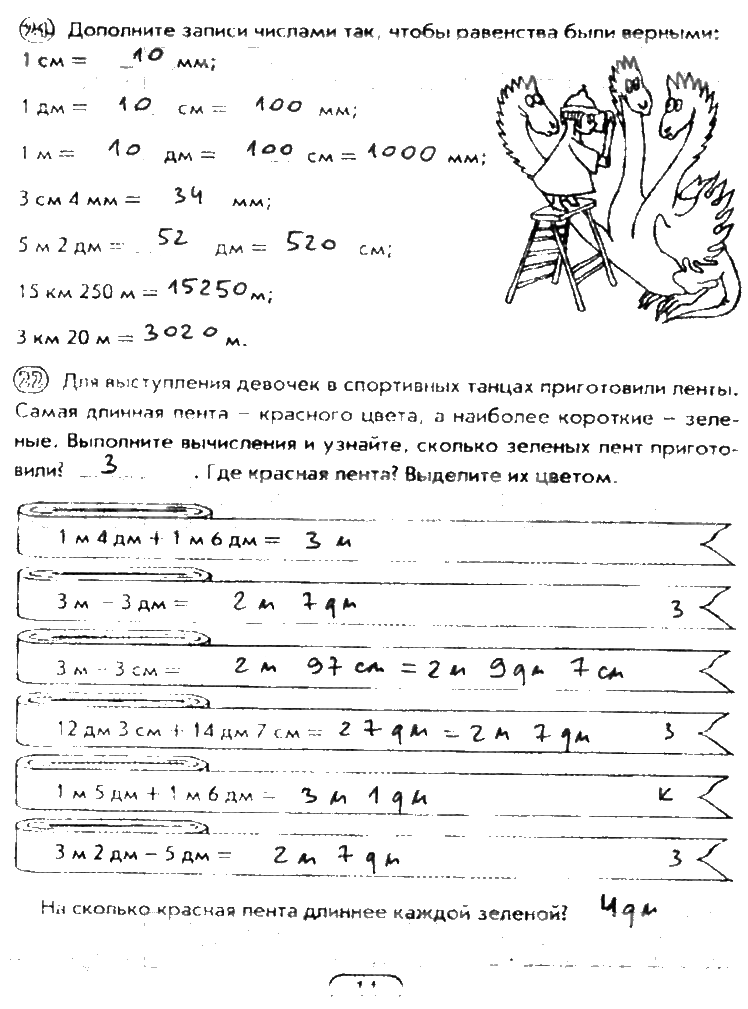 Дополните записи числами так, чтобы равенства были верными:
1 см = 10 мм;
1 дм = 10 см = 100 мм;
1 м = 10 дм = 100 см = 1000 мм;
3 см 4 мм = 34 мм;
5 м 2 дм = 52 дм = 520 см;
15 км 250 м = 15250 м;
3 км 20 м = 3020 м.
22 Для выступления девочек в спортивных танцах приготовили ленты.
Самая длинная лента – красного цвета, а наиболее короткие – зеле-
ные. Выполните вычисления и узнайте, сколько зеленых лент пригото-
вили? 3 . Где красная лента? Выделите их цветом.
1 м 4 дм + 1 м 6 дм = 3 м
3 м – 3 дм = 2 м 7 дм З
3 м – 3 см = 2 м 97 см = 2 м 9 дм 7 см
12 дм 3 см + 14 дм 7 см = 27 дм = 2 м 7 дм З
1 м 5 дм + 1 м 6 дм = 3 м 1 дм К
3 м 2 дм – 5 дм = 2 м 7 дм З
На сколько красная лента длиннее каждой зеленой? 4 дм